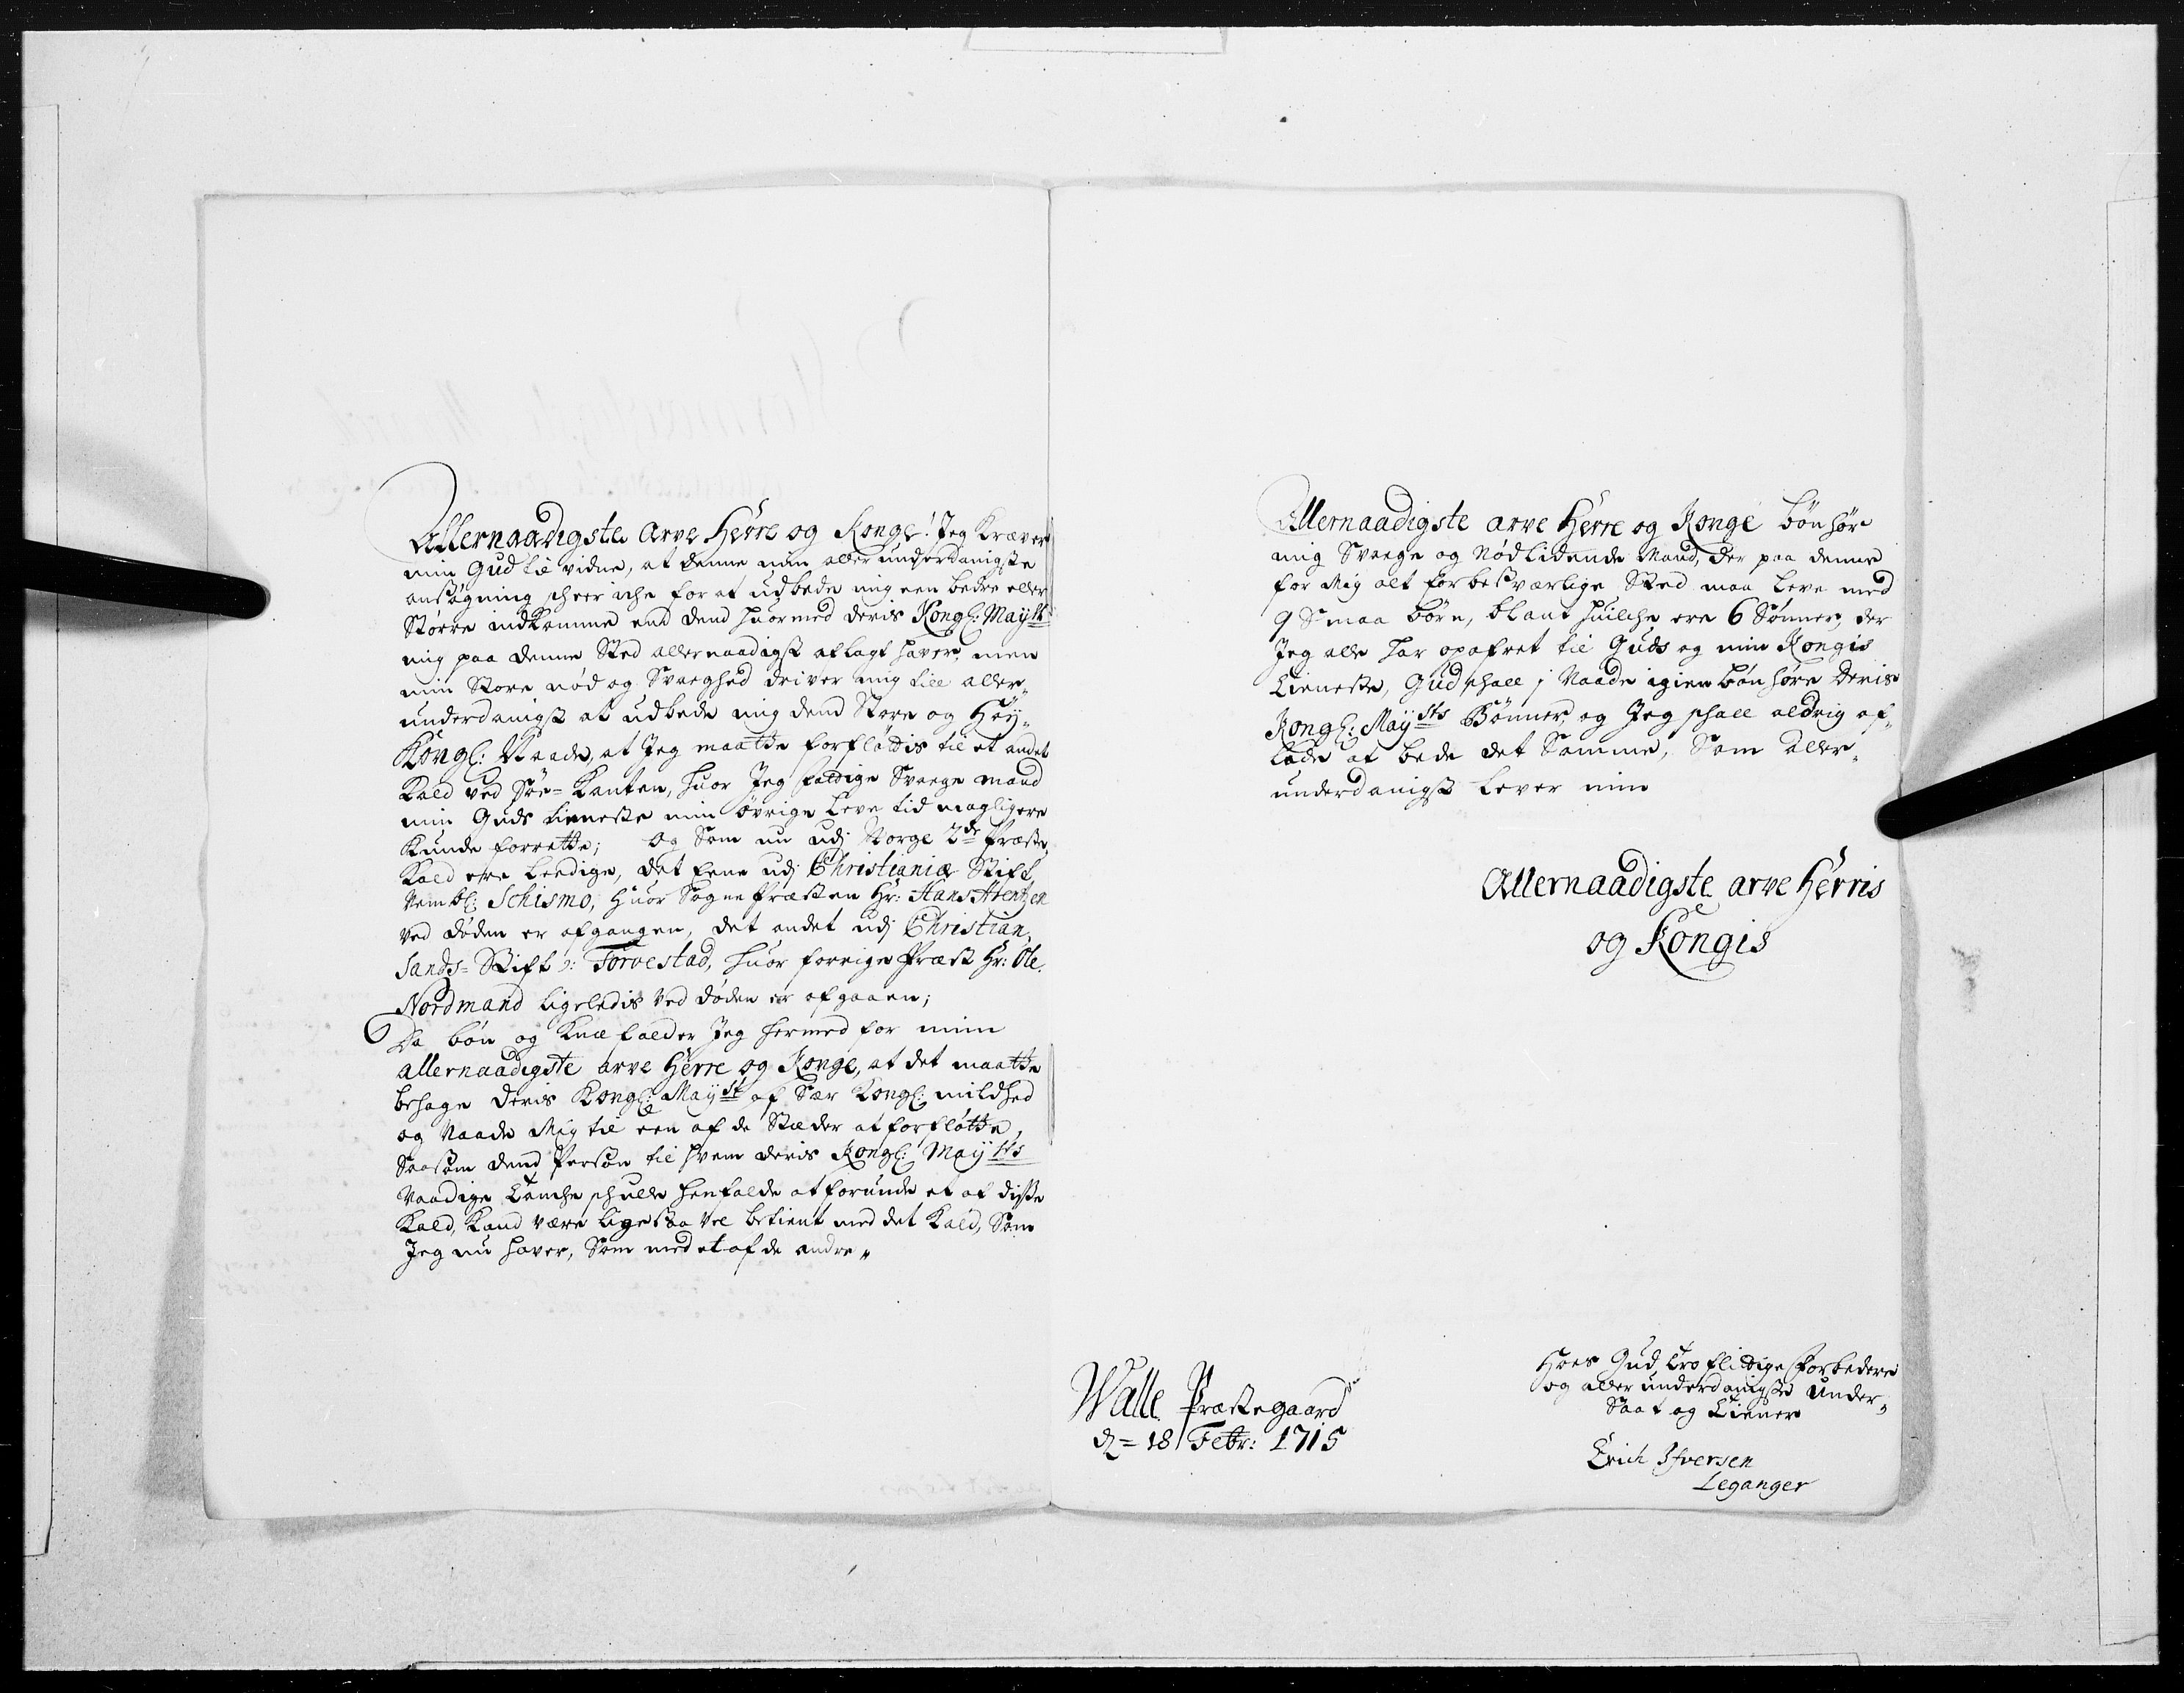 Allernaadigste Arve Herre og Konge! Jeg Kræver
min Gud til vidne, at denne min aller underdanigste
ansøgning scheer iche for at udbede mig een bedre eller
Større indkomme end dend huormed deris Kongl: Mayst:
mig paa denne Sted allernaadigst aflagt haver, men
min Store nød og Svaeghed driver mig till aller„
underdanigst at udbede mig dend Store og Høy„
Kongl: Naade, at Jeg maatte forfløttis til et andet
Kald ved Søe=Kanten, huor Jeg fattige Svaege mand
min Guds tieneste min øvrige Leve tid magligere
Kunde forrette; Og Som nu udj Norge 2de Præste„
Kald ere Leedige, det Eene udj Christianiæ Stift
Nembl: Schismo, huor Sognepræsten Hr: Hans Arentzen
ved døden er afgangen, det andet udj Christian„
sands=Stift ɔ: Torvestad, huor forrige Præst Hr: Ole
Nordmand ligeledis ved døden er afgaaen;
Da bøn og Knæfalder Jeg hermed for min
allernaadigste arve Herre og Konge, at det maatte
behage deris Kongl: Mayst af Sær Kongl: mildhed
og Naade Mig til een af de Stæder at forfløtte,
Saasom dend Person til hvem deris Kongl: Maysts
Naadige Tanche schulle henfalde at forunde et af disse
Kald, Kand være ligesaa vel betient med det Kald, Som
Jeg nu haver, Som med et af de andre„
Allernaadigste arve Herre og Konge bønhør
mig Svaege og Nødlidende Mand, der paa denne
for Mig alt forbesværlige Sted maa Leve med
9 Smaa børn, blant huilche ere 6 Sønner, der
Jeg alle har opofret til Guds og min Kongis
Tieneste, Gud schall j Naade igien bønhøre Deris
Kongl: Maysts Bønner, og Jeg schall aldrig af„
lade at bede det Samme, Som aller„
underdanigst lever min
Allernaadigste arve Herris
og Kongis
Hoes Gud troflittige forbedere
og allerunderdanigste Under„
Saat og Tiener
Erich Ifversen
Leganger
Walle Præstegaard
d= 18 Febr: 1715